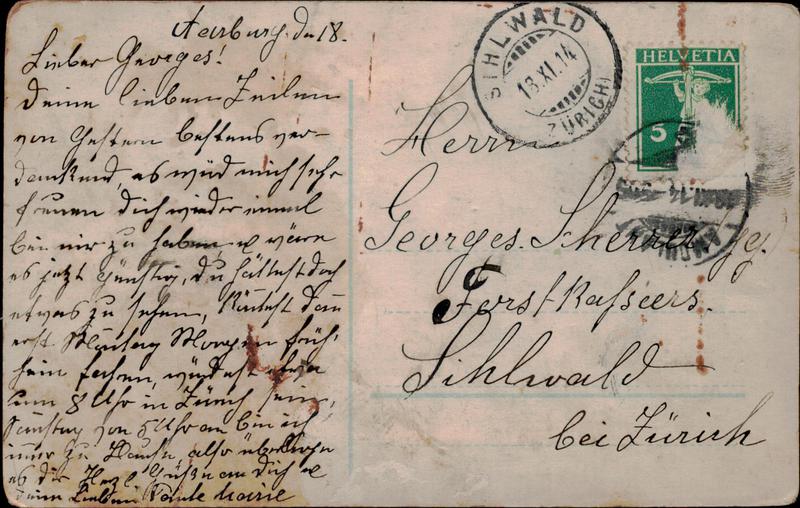 Aarburg, den 18.
Lieber Georges!
Deine lieben Zeilen
von Gestern bestens ver-
dankend, es würd mich sehr
freuen dich wieder einmal
bei mir zu haben, u wäre
es jetzt günstig, du hättest doch
etwas zu sehen, könntest dann
erst Montag Morgen früh
heim fahren, würdest etwa
um 8 Uhr in Zürich sein,
Samstag von 5 Uhr an bin ich
immer zu Hause, also überlege
es dir Herzl. Grüße an dich u
deine Lieben Tante Marie
SIHLWALD
18.XI.14
(ZÜRICH)
HELVETIA
5
Herrn
Georges Scherrer jg.
Forstkassiers.
Sihlwald
bei Zürich